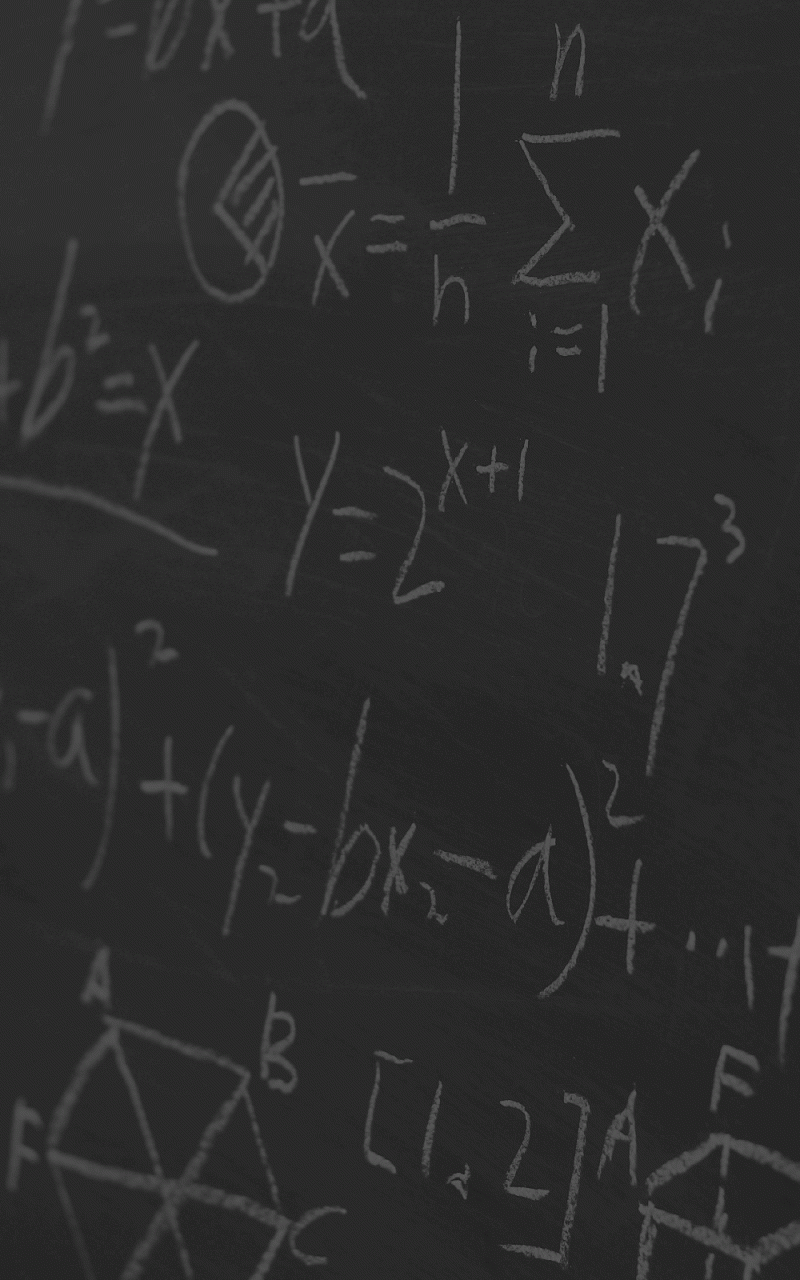 = bx + a
x̄ = 1/n n Σ i=1 xᵢ
+b² = x
y = 2^(x+1)
1.7³
-a)² + (y₂ - bx₂ - a)² + ...
A B F C
[1,2]
A F